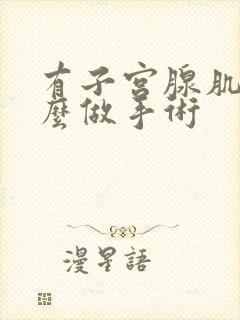 有子宮腺肌
麼做手術
漫星語